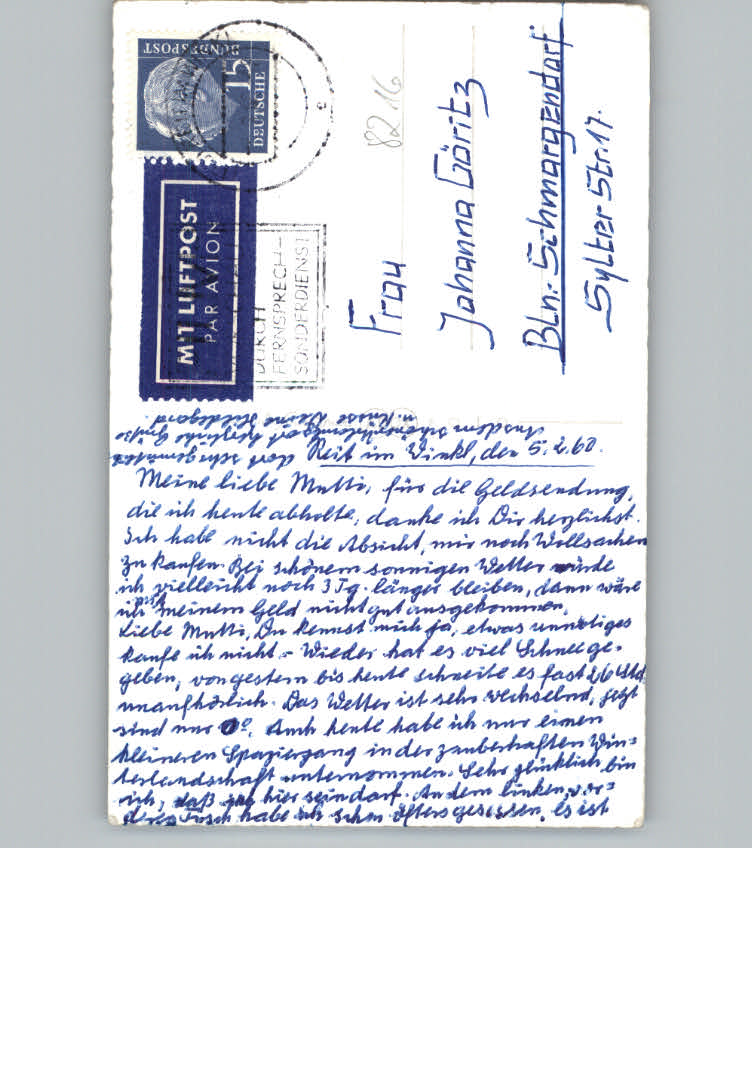 DEUTSCHE
BUNDESPOST
15
MIT LUFTPOST
PAR AVION
DURCH
FERNSPRECH-
SONDERDIENST
8216
Frau
Johanna Göritz
Bln.-Schmargendorf
Sylter Str. 17.
Reit im Winkl, den 5.2.60.
Meine liebe Mutti, für die Geldsendung,
die ich heute abholte, danke ich Dir herzlichst.
Ich habe nicht die Absicht, mir noch Wollsachen
zu kaufen. Bei schönem sonnigen Wetter würde
ich vielleicht noch 3 Tg. länger bleiben, dann wäre
ich mit meinem Geld nicht gut ausgekommen.
Liebe Mutti, Du kennst mich ja, etwas unnötiges
kaufe ich nicht. - Wieder hat es viel Schnee ge-
geben, vorgestern bis heute schneite es fast Std.
unaufhörlich. Das Wetter ist sehr wechselnd, jetzt
sind nur 0°. Auch heute habe ich nur einen
kleineren Spaziergang in der zauberhaften Win-
terlandschaft unternommen. Sehr glücklich bin
ich, daß ich hier sein darf. An dem linken, vor-
deren Tisch habe ich schon öfters gesessen, es ist
dort sehr gemütlich
Aus dem herzliche Grüße
u. Küsse Deine Hildegard.